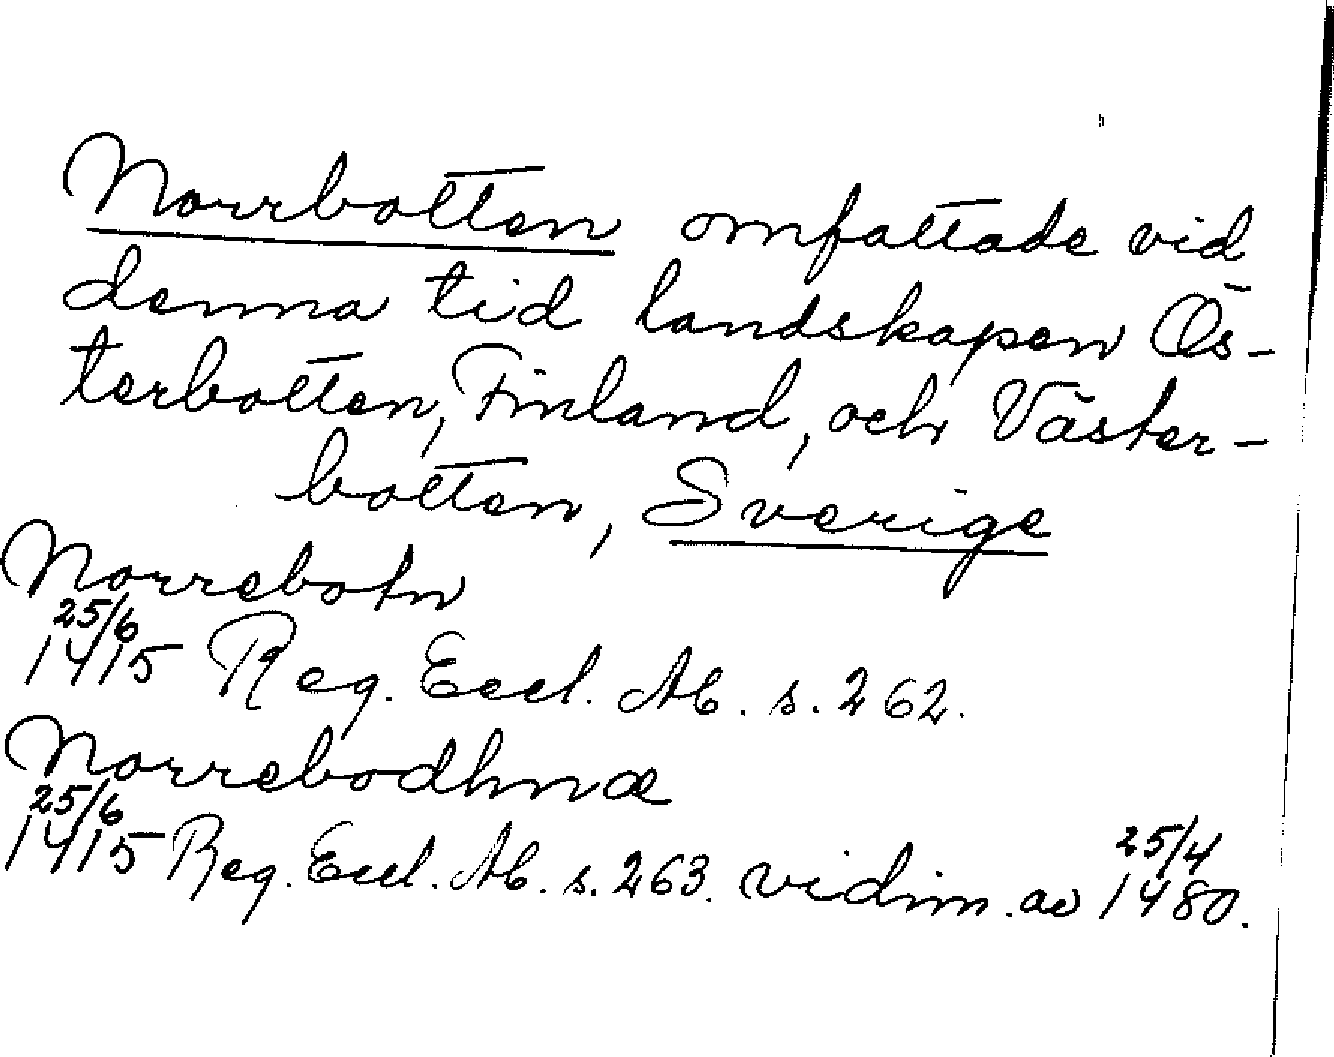 Norrbotten omfattade vid
denna tid landskapen Ös-
terbotten, Finland, och Väster-
botten, Sverige
Norrebotn
25/6
1415 Reg. Eccl. Ab. s. 262.
Norrebodhnæ
25/6 25/4
1415 Reg. Eccl. Ab. s. 263. vidim. av 1480.